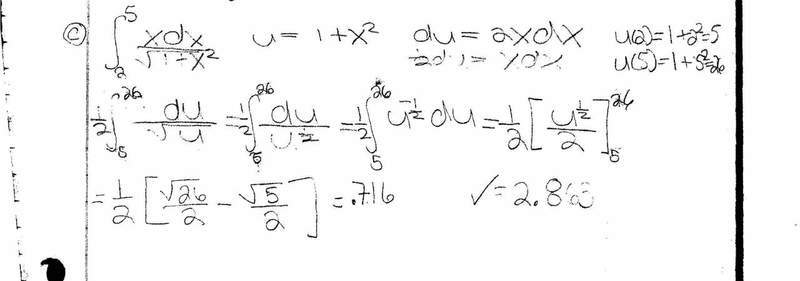 (c) ∫₂⁵ xdx/√(1+x²) u = 1+x² du = 2xdx u(2)=1+2²=5
½du = xdx u(5)=1+5²=26
½∫₅²⁶ du/√u = ½∫₅²⁶ du/u^½ = ½∫₅²⁶ u^-½ du = ½[u^½/2]₅²⁶
= ½[√26/2 - √5/2] = .716 √= 2.863